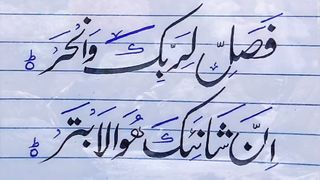 فَصَلِّ لِرَبِّكَ وَانْحَرْ ؕ
اِنَّ شَانِئَكَ هُوَ الْاَبْتَرُ ؕ